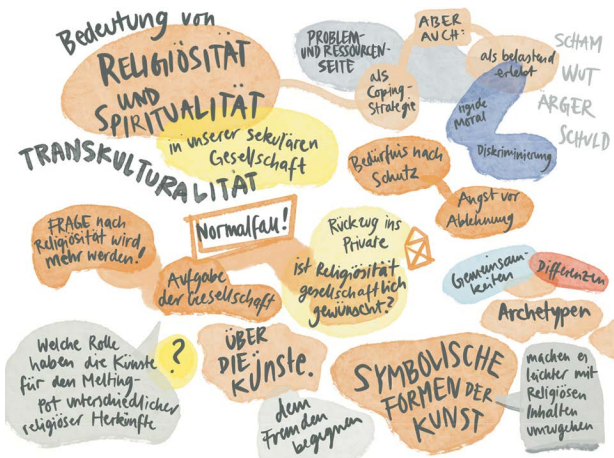 Bedeutung von
RELIGIÖSITÄT
UND
SPIRITUALITÄT
in unserer sekulären
Gesellschaft
TRANSKULTURALITÄT
PROBLEM-
UND RESSOURCEN-
SEITE
als
Coping-
Strategie
ABER
AUCH:
als belastend
erlebt
SCHAM
WUT
ÄRGER
SCHULD
rigide
Moral
Diskriminierung
Bedürfnis nach
Schutz
Angst vor
Ablehnung
FRAGE nach
Religiösität wird
mehr werden!
Normalfall!
Aufgabe
der Gesellschaft
Rückzug ins
Private
ist Religiösität
gesellschaftlich
gewünscht?
Gemeinsam-
keiten
Differenzen
Archetypen
Welche Rolle
haben die Künste
für den Melting-
Pot unterschiedlicher
religiöser Herkünfte
?
ÜBER
DIE
KÜNSTE.
dem
Fremden
begegnen
SYMBOLISCHE
FORMEN DER
KUNST
machen es
leichter mit
Religiösen
Inhalten
umzugehen